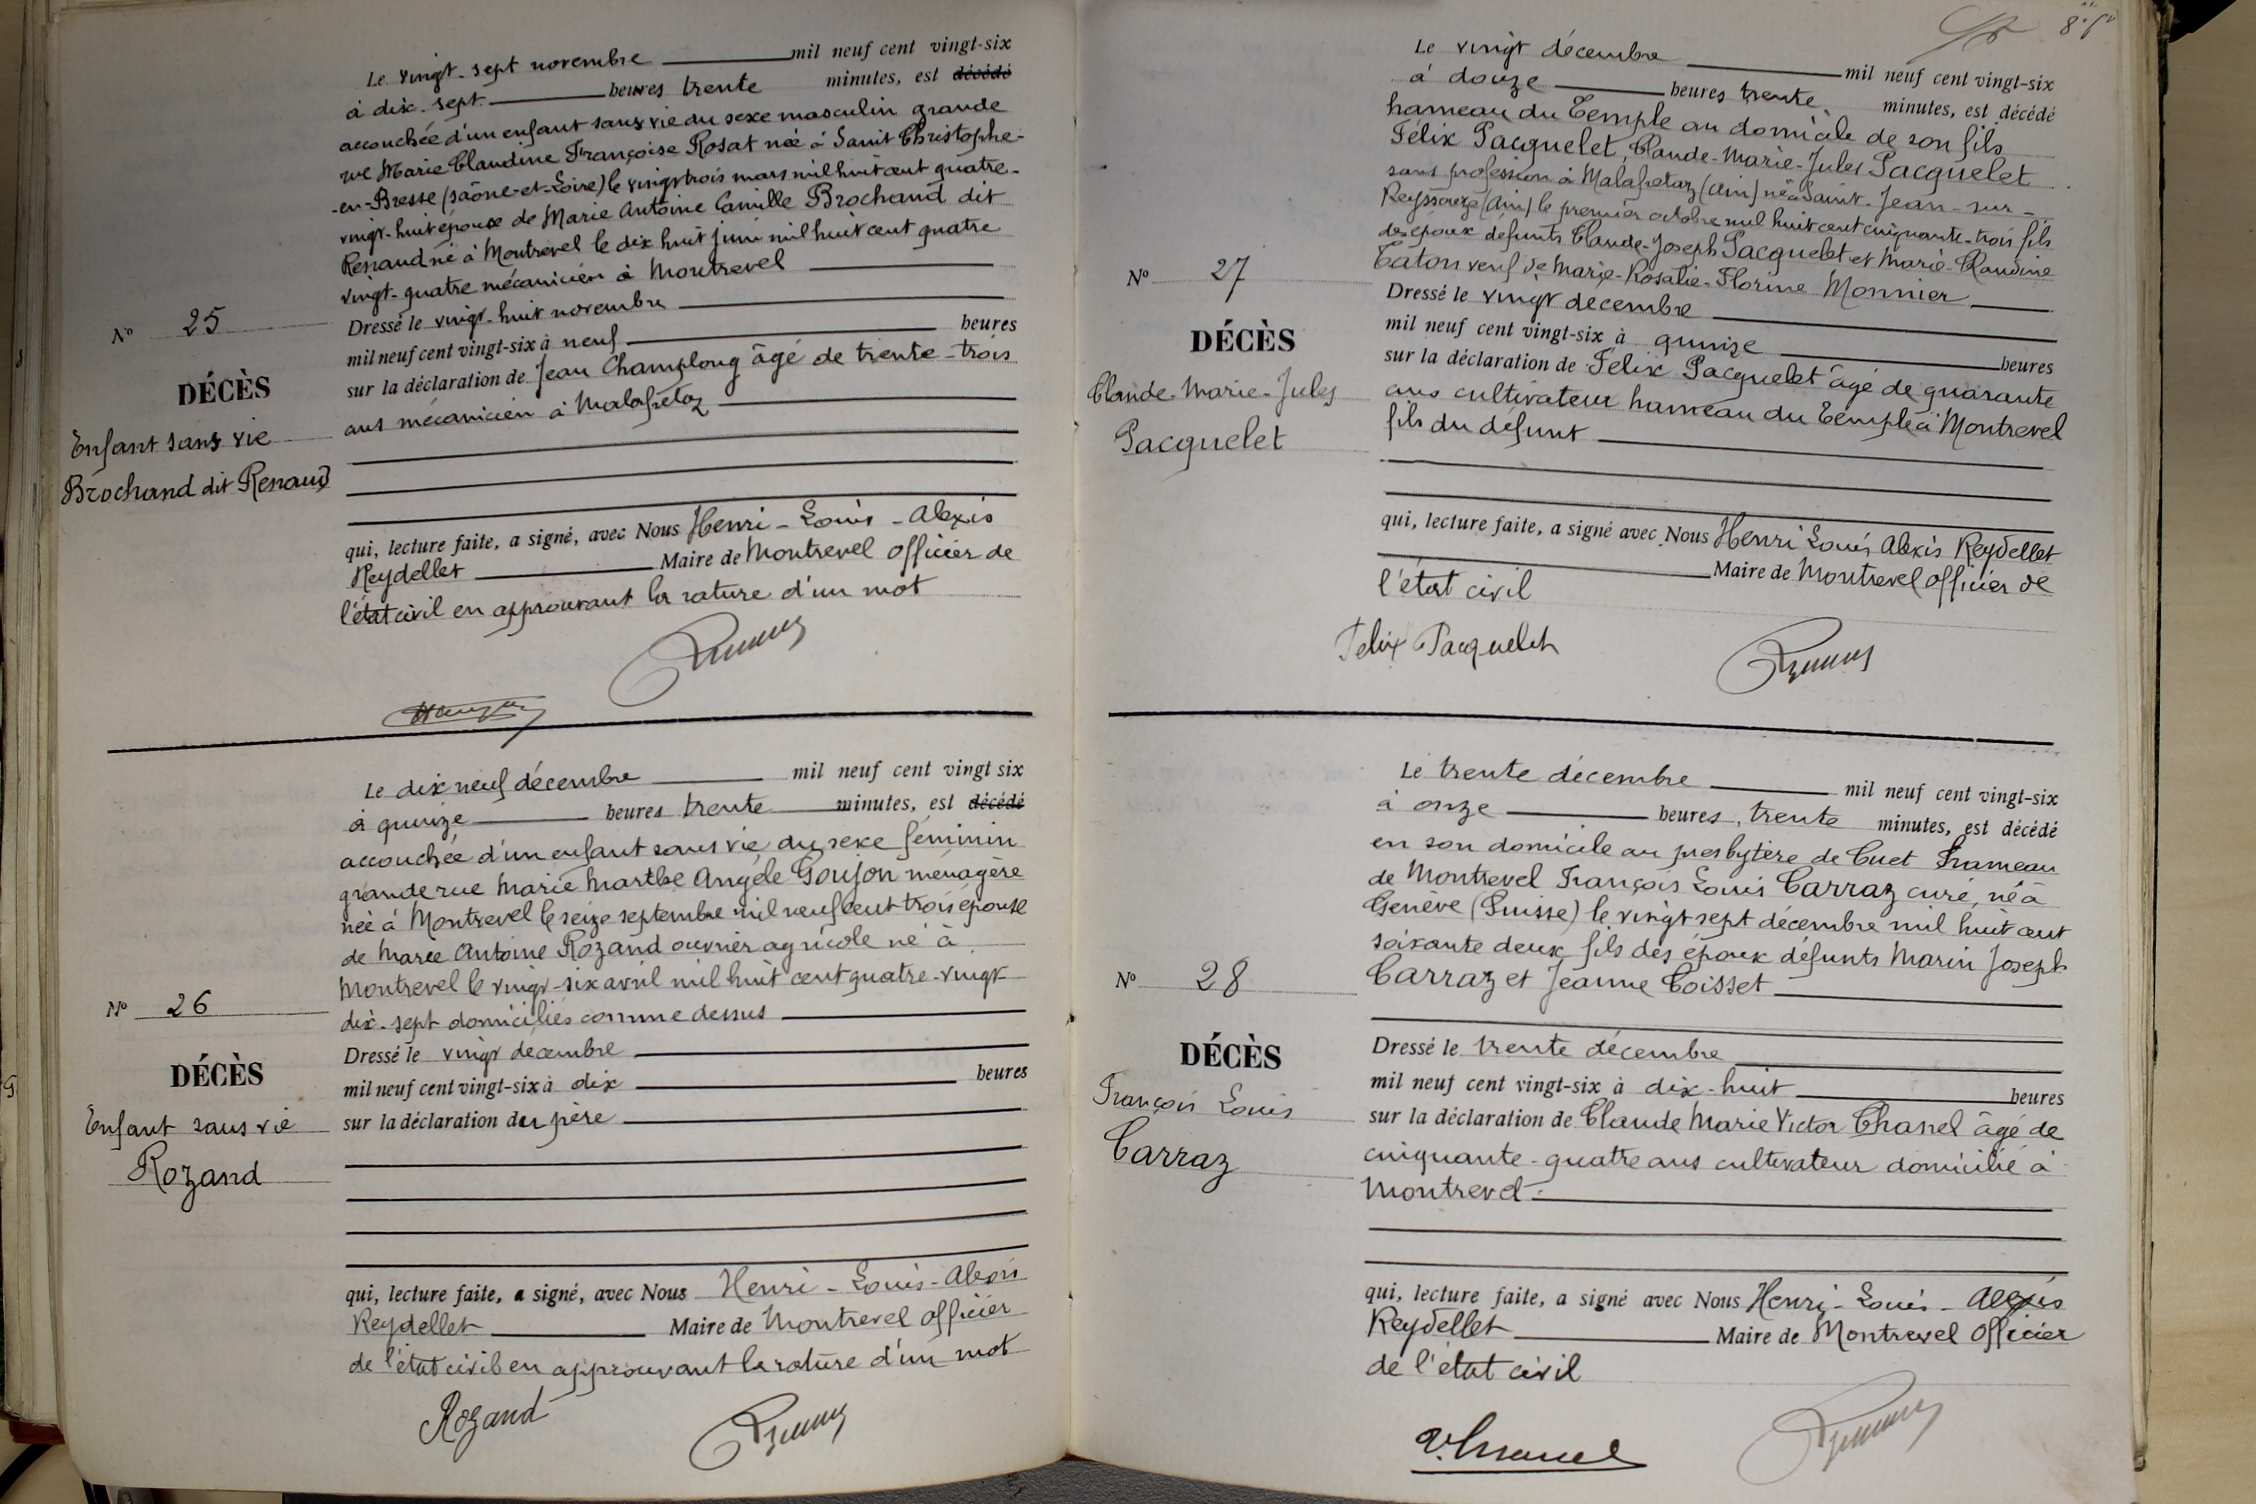 Le vingt-sept novembre mil neuf cent vingt-six
à dix-sept heures trente minutes, est décédé
accouchée d'un enfant sans vie du sexe masculin grande
rue Marie Claudine Françoise Rosat née à Saint Christophe-
-en-Bresse (Saône-et-Loire) le vingt trois mars mil huit cent quatre-
vingt-huit épouse de Marie Antoine Camille Brochand dit
Renaud né à Montrevel le dix huit juin mil huit cent quatre
vingt-quatre mécanicien à Montrevel
Dressé le vingt-huit novembre
mil neuf cent vingt-six à neuf heures
sur la déclaration de Jean Champlong âgé de trente-trois
ans mécanicien à Malafretaz
qui, lecture faite, a signé, avec Nous Henri-Louis-Alexis
Reydellet Maire de Montrevel officier de
l'état civil en approuvant la rature d'un mot
No 25
DÉCÈS
Enfant sans vie
Brochand dit Renaud
Le dix neuf décembre mil neuf cent vingt six
à quinze heures trente minutes, est décédé
accouchée d'un enfant sans vie du sexe féminin
grande rue Marie Marthe Angèle Goujon ménagère
née à Montrevel le seize septembre mil neuf cent trois épouse
de Marie Antoine Rozand ouvrier agricole né à
Montrevel le vingt-six avril mil huit cent quatre-vingt
dix-sept domiciliés comme dessus
Dressé le vingt décembre
mil neuf cent vingt-six à dix heures
sur la déclaration du père
qui, lecture faite, a signé, avec Nous Henri-Louis-Alexis
Reydellet Maire de Montrevel officier
de l'état civil en approuvant la rature d'un mot
Rozand
No 26
DÉCÈS
Enfant sans vie
Rozand
Le vingt décembre mil neuf cent vingt-six
à douze heures trente minutes, est décédé
hameau du Temple au domicile de son fils
Félix Pacquelet, Claude-Marie-Jules Pacquelet
sans profession à Malafretaz (Ain) né à Saint-Jean-sur-
Reyssouze (Ain) le premier octobre mil huit cent cinquante-trois fils
des époux défunts Claude-Joseph Pacquelet et Marie-Claudine
Caton veuf de Marie-Rosalie-Florine Monnier
Dressé le vingt décembre
mil neuf cent vingt-six à quinze heures
sur la déclaration de Félix Pacquelet âgé de quarante
ans cultivateur hameau du Temple à Montrevel
fils du défunt
qui, lecture faite, a signé avec Nous Henri Louis Alexis Reydellet
Maire de Montrevel officier de
l'état civil
Felix Pacquelet
No 27
DÉCÈS
Claude-Marie-Jules
Pacquelet
Le trente décembre mil neuf cent vingt-six
à onze heures, trente minutes, est décédé
en son domicile au presbytère de Cuet hameau
de Montrevel François Louis Carraz curé, né à
Genève (Suisse) le vingt sept décembre mil huit cent
soixante deux, fils des époux défunts Marin Joseph
Carraz et Jeanne Coisset
Dressé le trente décembre
mil neuf cent vingt-six à dix-huit heures
sur la déclaration de Claude Marie Victor Chanel âgé de
cinquante-quatre ans cultivateur domicilié à
Montrevel
qui, lecture faite, a signé avec Nous Henri-Louis-Alexis
Reydellet Maire de Montrevel officier
de l'état civil
V. Chanel
No 28
DÉCÈS
François Louis
Carraz